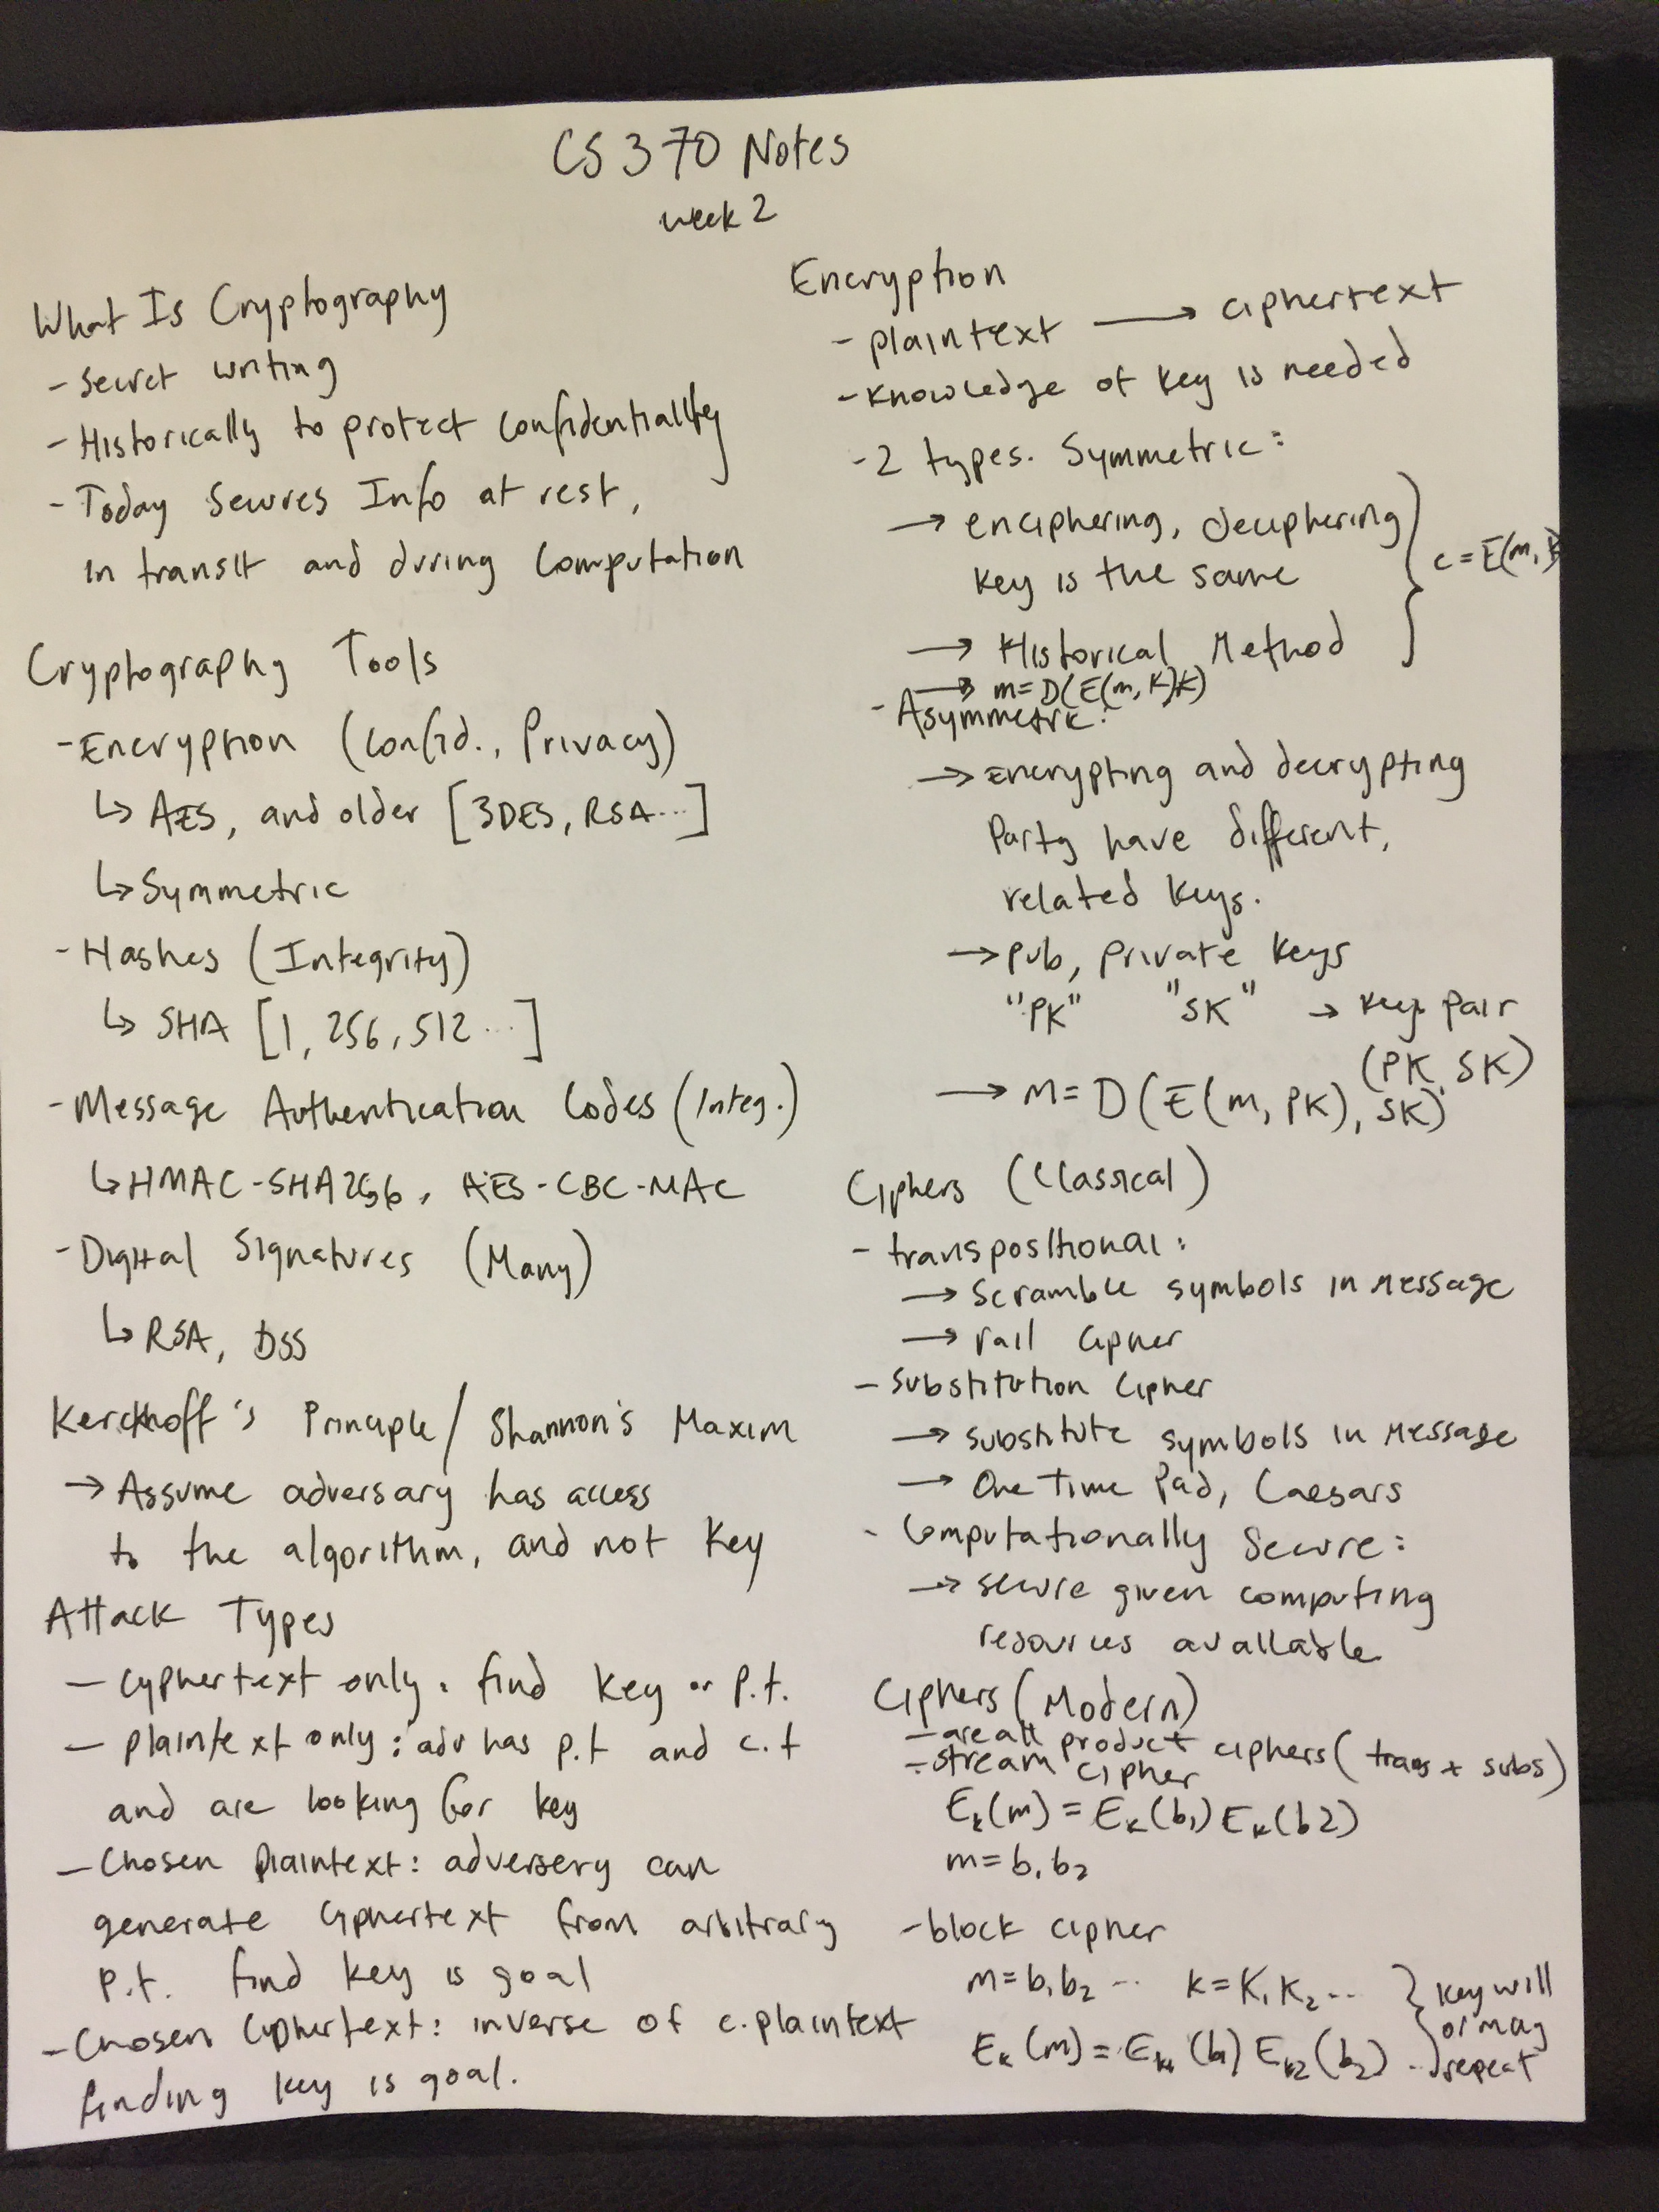 CS 370 Notes
week 2
What Is Cryptography
- Secret writing
- Historically to protect confidentiality
- Today Secures Info at rest,
in transit and during Computation
Cryptography Tools
- Encryption (Confid., Privacy)
↳ AES, and older [3DES, RSA...]
↳ Symmetric
- Hashes (Integrity)
↳ SHA [1, 256, 512 ...]
- Message Authentication Codes (Integ.)
↳ HMAC-SHA256, AES-CBC-MAC
- Digital Signatures (Many)
↳ RSA, DSS
Kerckhoff's Principle / Shannon's Maxim
→ Assume adversary has access
to the algorithm, and not key
Attack Types
- Cyphertext only: find key or p.t.
- plaintext only: adv has p.t and c.t
and are looking for key
- Chosen Plaintext: adversery can
generate ciphertext from arbitrary
p.t. find key is goal
- Chosen Ciphertext: inverse of c.plaintext
finding key is goal.
Encryption
- plaintext → ciphertext
- knowledge of key is needed
- 2 types. Symmetric:
→ enciphering, deciphering
key is the same
c = E(m, k
→ Historical Method
→ m = D(E(m, K)K)
- Asymmetric:
→ encrypting and decrypting
Party have different,
related keys.
→ pub, private keys
"PK" "SK" → key pair
(PK, SK)
→ m = D(E(m, PK), SK)
Ciphers (Classical)
- transpositional:
→ Scramble symbols in message
→ rail cipher
- substitution cipher
→ substitute symbols in message
→ One Time Pad, Caesars
- Computationally Secure:
→ secure given computing
resources available
Ciphers (Modern)
- are all product ciphers (trans + subs)
- stream cipher
Eₖ(m) = Eₖ(b₁) Eₖ(b2)
m = b₁ b₂
- block cipher
m = b₁ b₂ ... k = K₁ K₂ ...
Eₖ(m) = Eₖ₁(b₁) Eₖ₂(b₂) ...
key will
or may
repeat